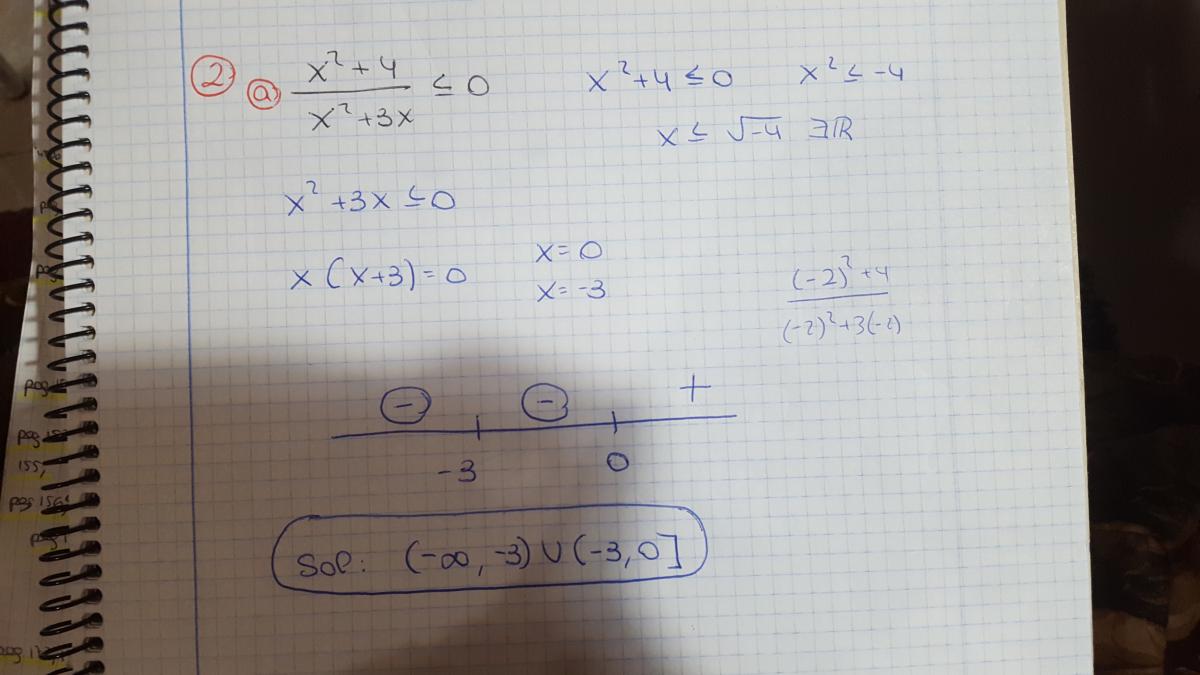 ② ⓐ x²+4 / x²+3x ≤ 0 x²+4 ≤ 0 x² ≤ -4
x ≤ √-4 ∃ℝ
x² +3x ≤ 0
x (x+3) = 0 x = 0
x = -3
(-2)²+4 / (-2)²+3(-2)
- - +
-3 0
Sol: (-∞, -3) ∪ (-3, 0]
pag
155,
pag 156,